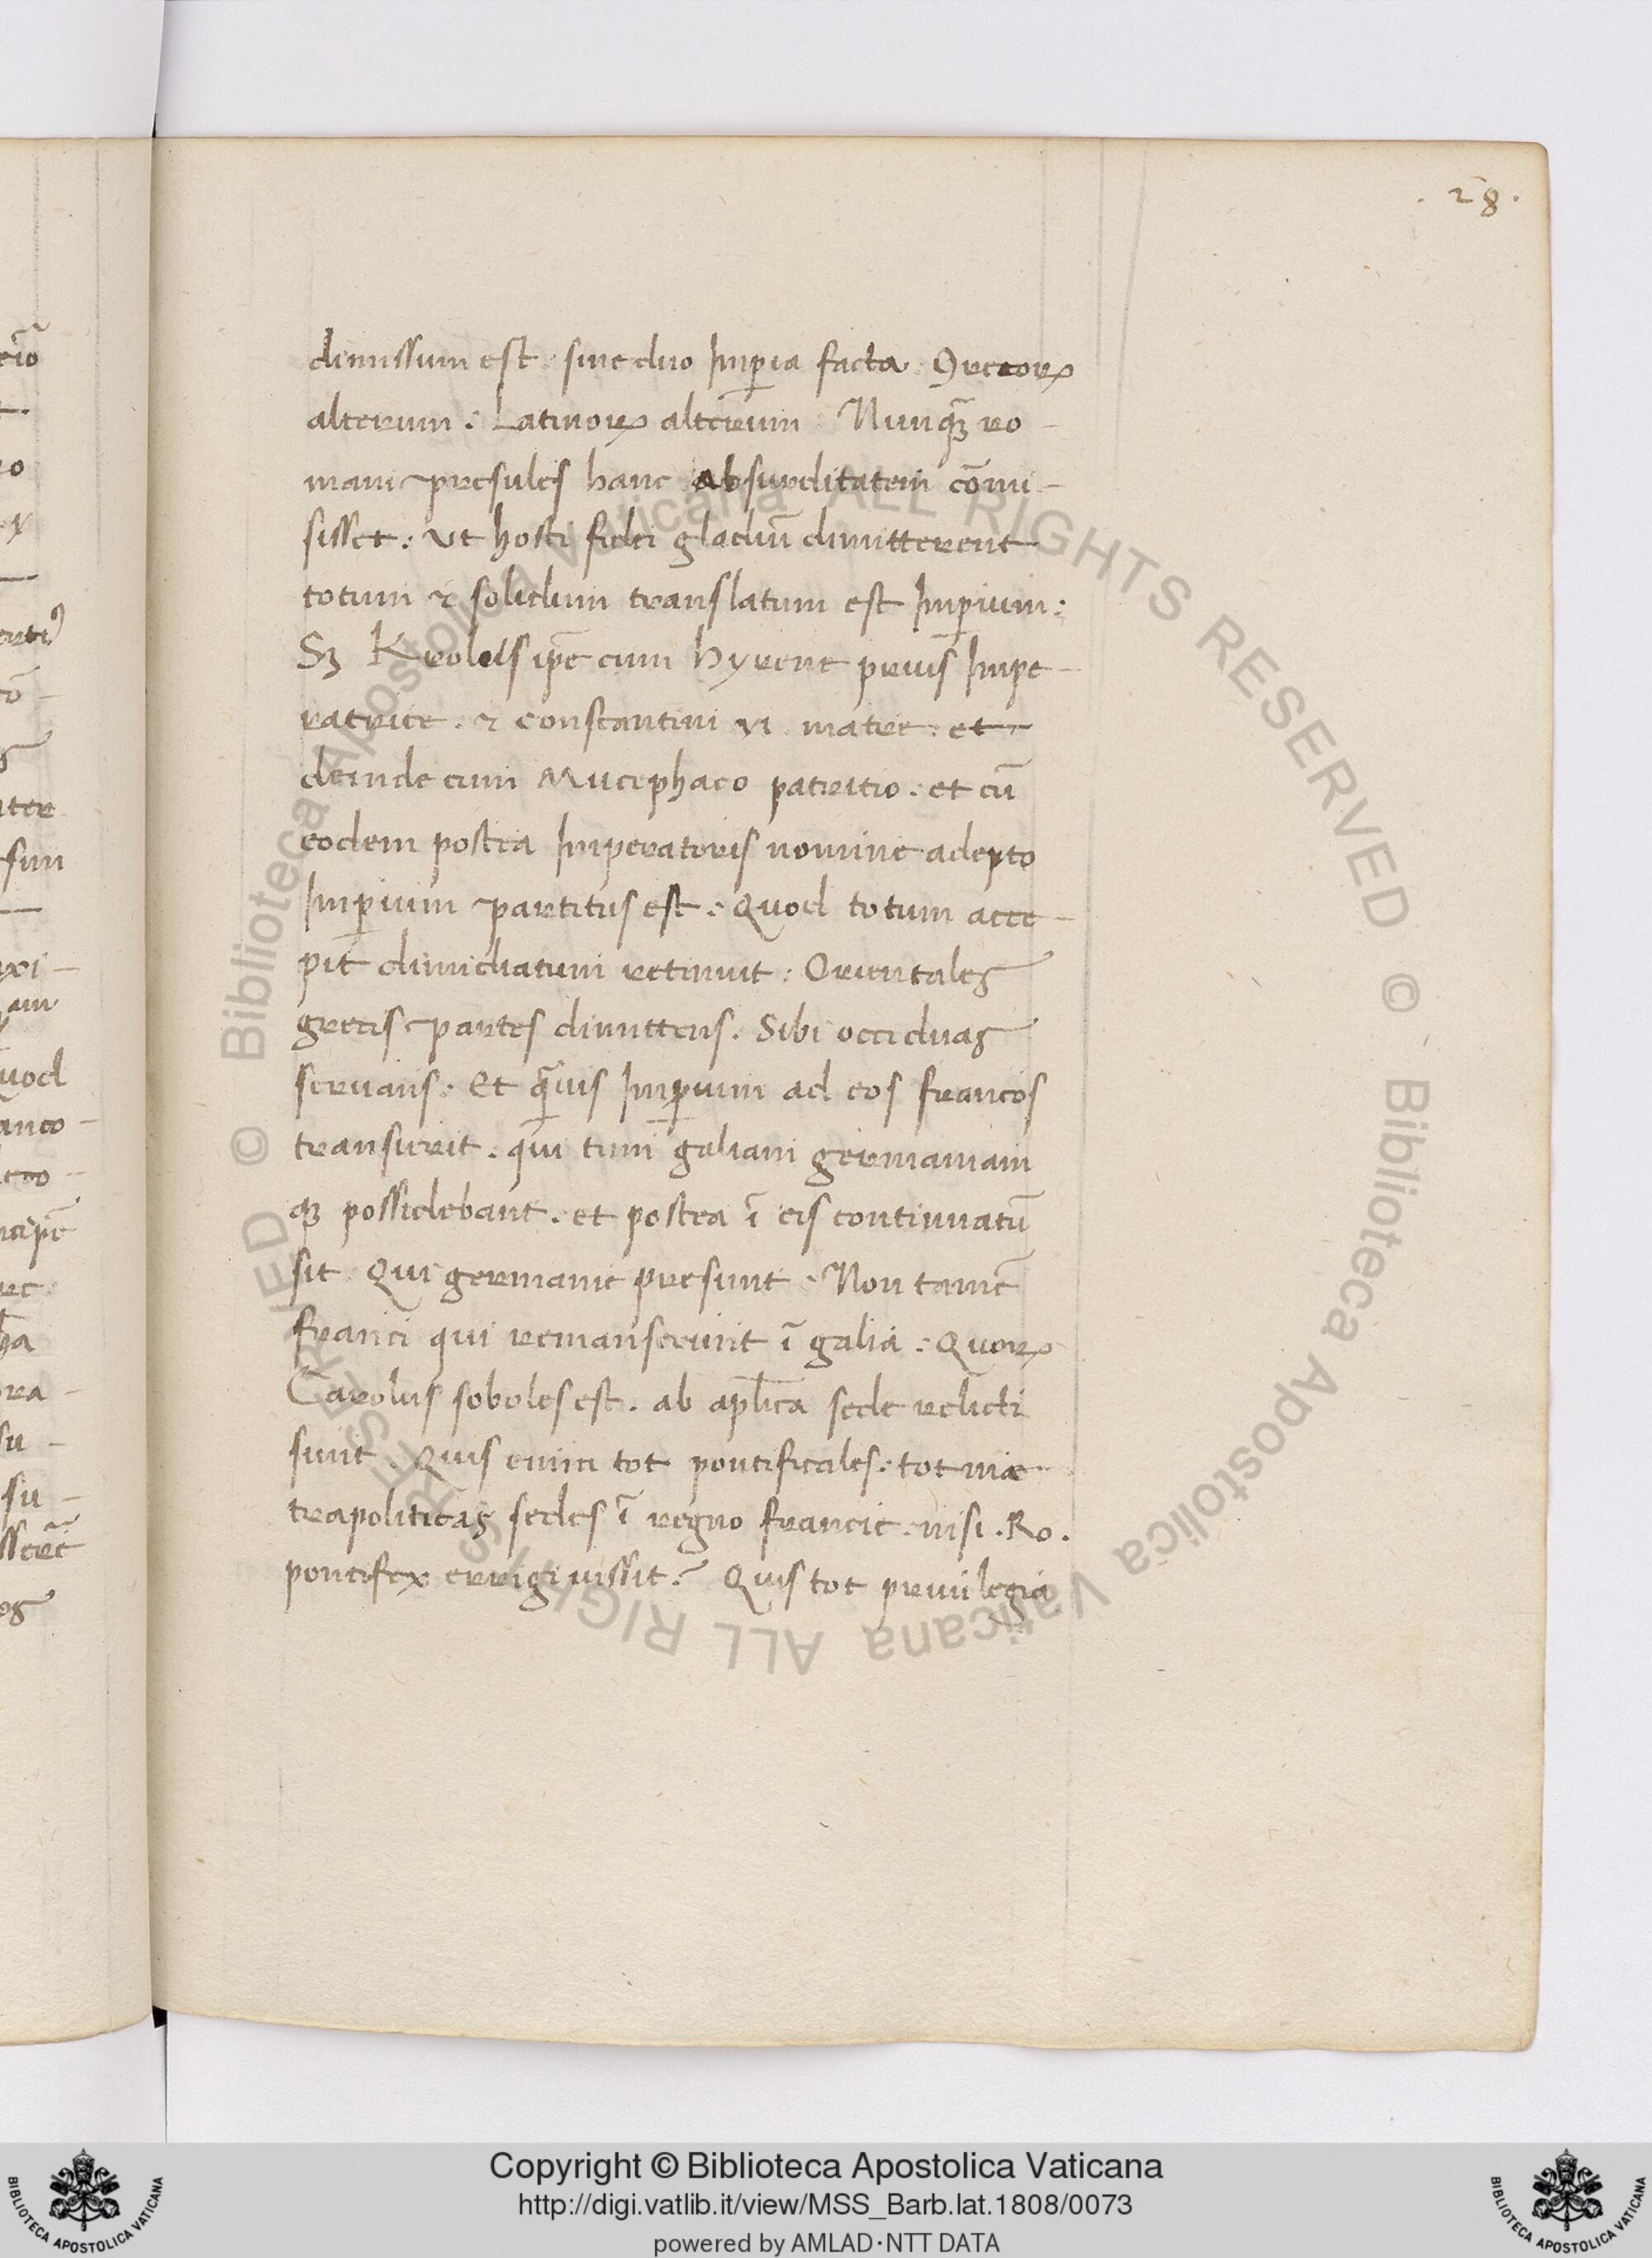 . 28 .
dimissum est . sint duo Imp̄ia facta . Grecorꝝ
alterum : Latinorꝝ alterum . Nunqꝫ ro -
mani presules hanc absurditatem cōmi -
sisset : ut hosti fidei gladiū dimitterent
totum ⁊ solidum translatum est Imp̄ium :
Sꝫ Krolels ip̄e cum hyrene prius Impe -
ratrice . ⁊ constantini vi matre . et
deinde cum Mucephaco patritio . et cū
eodem postea Imperatoris nomine adepto
Imp̄ium partitus est . Quod totum acce -
pit dimidiatum retinuit : Orientales
grecis partes dimittens . Sibi occiduas
servans . Et q̄uis Imp̄ium ad eos francos
transierit . qui tum galiam germaniam
qꝫ possidebant . et postea ī eis continuatū
sit . Qui germanie presunt . Non tamē
franci qui remanserunt ī galia . Quorꝝ
Carolus soboles est . ab apl̄ica sede relicti
sunt . Quis enim tot pontificales . tot me -
trapoliticas sedes ī regno francie . nisi . Ro .
pontifex errigi iussit ? Quis tot privilegia
Copyright © Biblioteca Apostolica Vaticana
http://digi.vatlib.it/view/MSS_Barb.lat.1808/0073
powered by AMLAD·NTT DATA